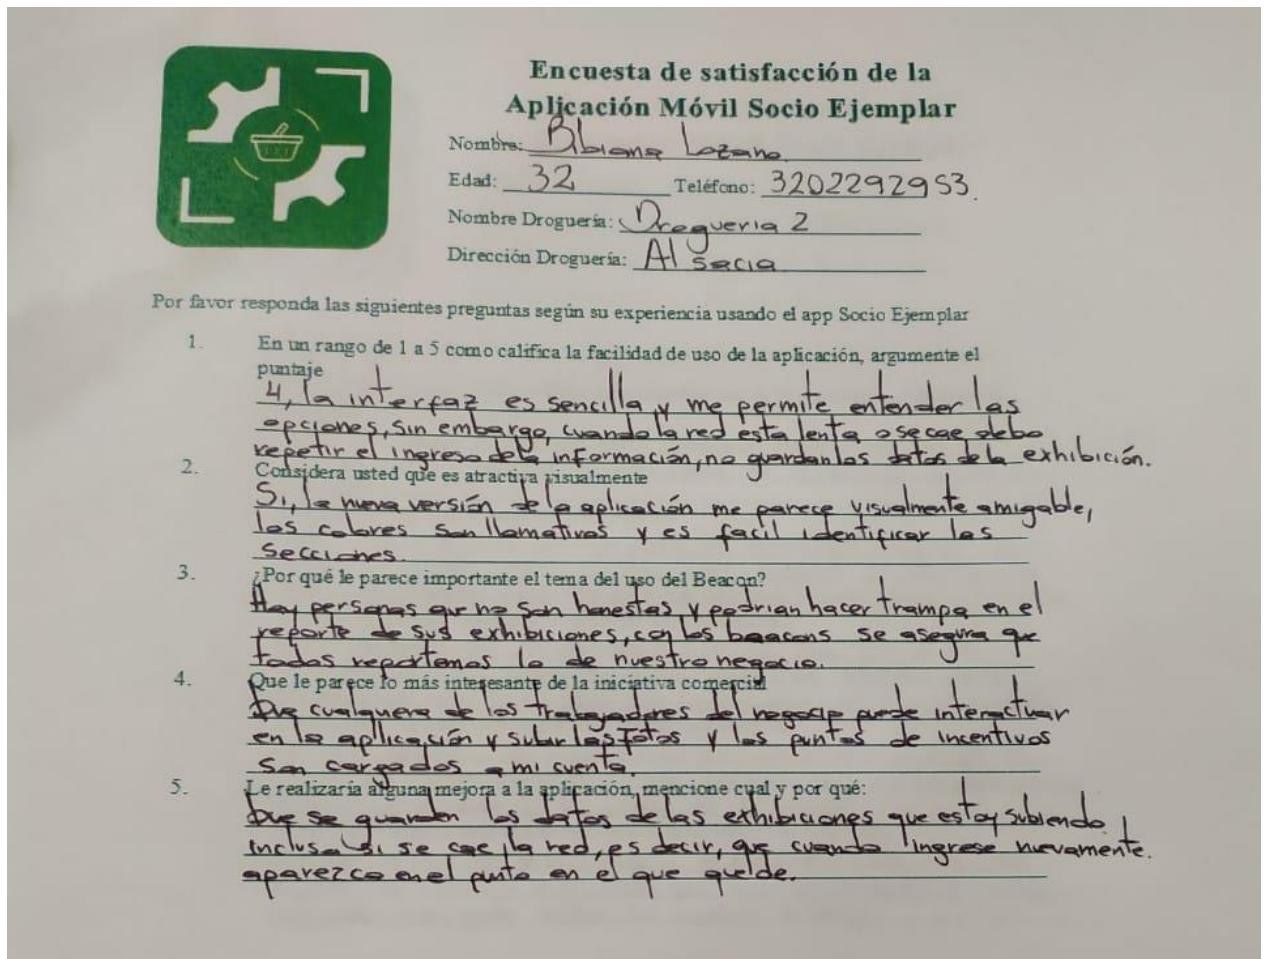 Encuesta de satisfacción de la
Aplicación Móvil Socio Ejemplar
Nombre: Bibiana Lozano
Edad: 32 Teléfono: 3202292953.
Nombre Droguería: Drogueria 2
Dirección Droguería: Alsacia
Por favor responda las siguientes preguntas según su experiencia usando el app Socio Ejemplar
1. En un rango de 1 a 5 como califica la facilidad de uso de la aplicación, argumente el
puntaje
4, la interfaz es sencilla y me permite entender las
opciones, sin embargo, cuando la red esta lenta o se cae debo
repetir el ingreso de la información, no guardan los datos de la exhibición.
2. Considera usted que es atractiva visualmente
Si, la nueva versión de la aplicación me parece visualmente amigable,
los colores son llamativos y es facil identificar las
secciones.
3. ¿Por qué le parece importante el tema del uso del Beacon?
Hay personas que no son honestas y podrian hacer trampa en el
reporte de sus exhibiciones, con los beacons se asegura que
todos reportemos lo de nuestro negocio.
4. Que le parece lo más interesante de la iniciativa comercial
Que cualquera de los trabajadores del negocio puede interactuar
en la aplicación y subir las fotos y los puntos de incentivos
son cargados a mi cuenta.
5. Le realizaría alguna mejora a la aplicación, mencione cual y por qué:
Que se guarden los datos de las exhibiciones que estoy subiendo
inclusa si se cae la red, es decir, que cuando ingrese nuevamente.
aparezca en el punto en el que quede.